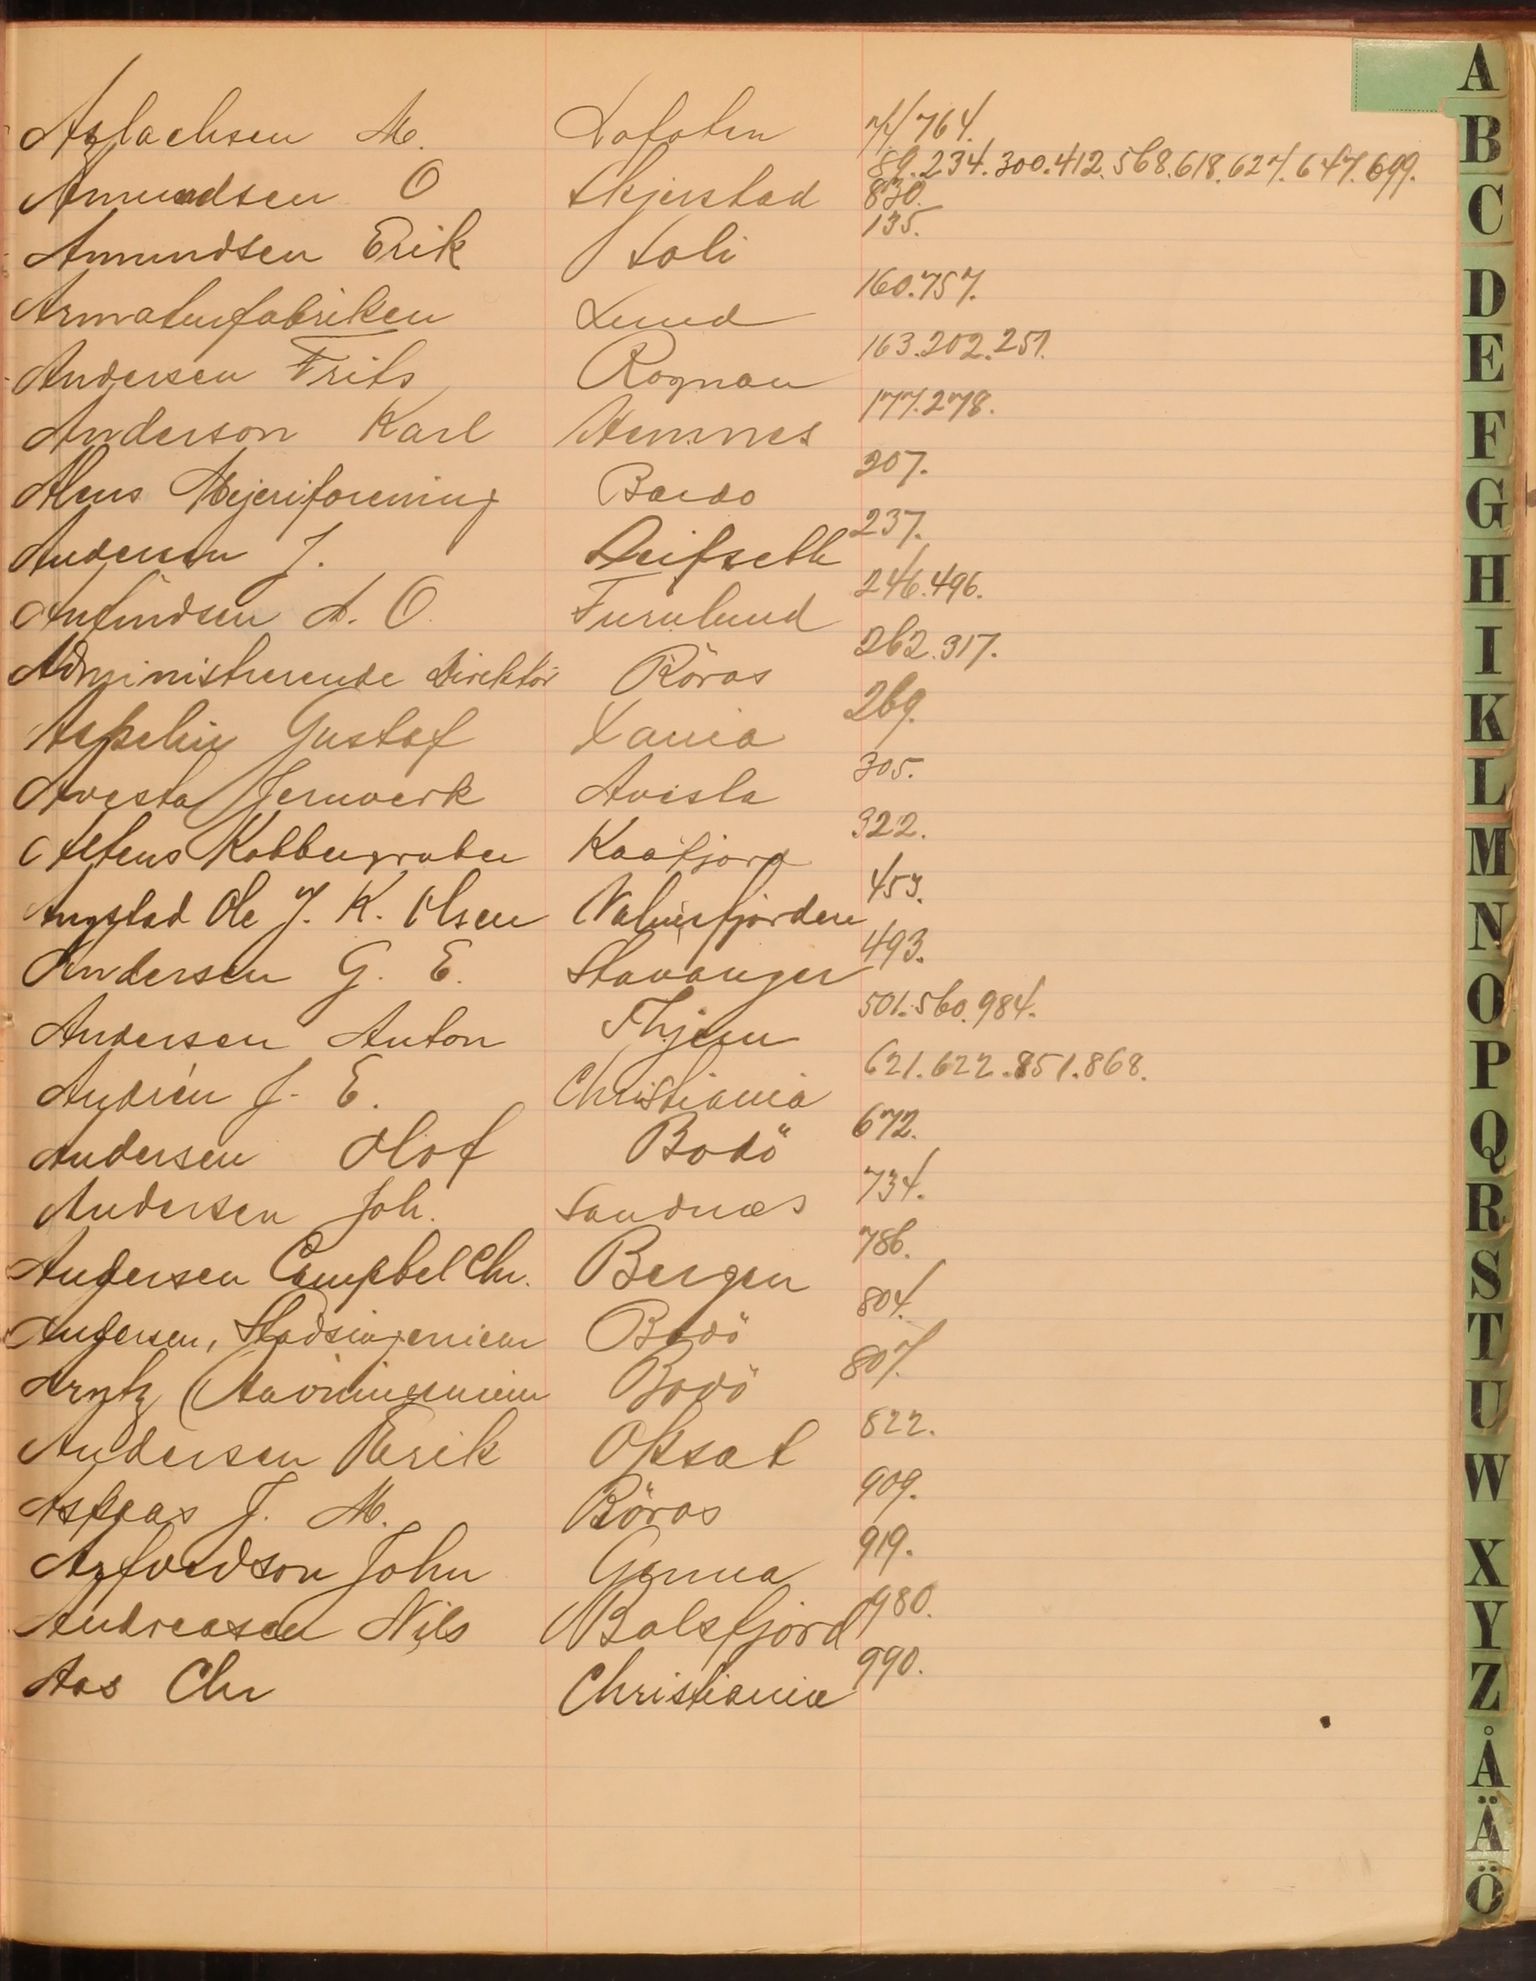 Aslachsen M. Lofoten 74. 764.
Amundsen O Skjerstad 89. 234. 300. 412. 568. 618. 627. 647. 699. 830.
Amundsen Erik Soli 135.
Armaturfabriken Lund 160. 757.
Andersen Frits Rognan 163. 202. 251.
Anderson Karl Hemnes 177. 278.
Alens Mejeriforening 207.
Andersen J. Leifseth 237.
Amundsen A. O. Furulund 246. 496.
Administrerende Direktör Röros 262. 317.
Aspelin Gustaf 269.
Avesta Jernverk Avesta 305.
Altens Kobbergruber Kaafjord 322.
Angstad Ole J. K. Olsen Valnesfjorden 453.
Andersen G. E. Stavanger 493.
Andersen Anton 501. 560. 984.
Andrén J. E. Christiania 621. 622. 851. 868.
Andersen Olof Bodö 672.
Andersen Joh. Sandnæs 734.
Andersen Campbel Chr. Bergen 786.
Andersen, Stadsingenieur Bodö 804.
Arntz (Havneingenieur Bodö 807.
Andersen Erik Oksat 822.
Aspaas J. M. Röros 909.
Arfvedson John Genua 919.
Andreasen Nils Balsfjord 980.
Aas Chr Christiania 990.
A
B
C
D
E
F
G
H
I
K
L
M
N
O
P
Q
R
S
T
U
W
X
Y
Z
Å
Ä
Ö